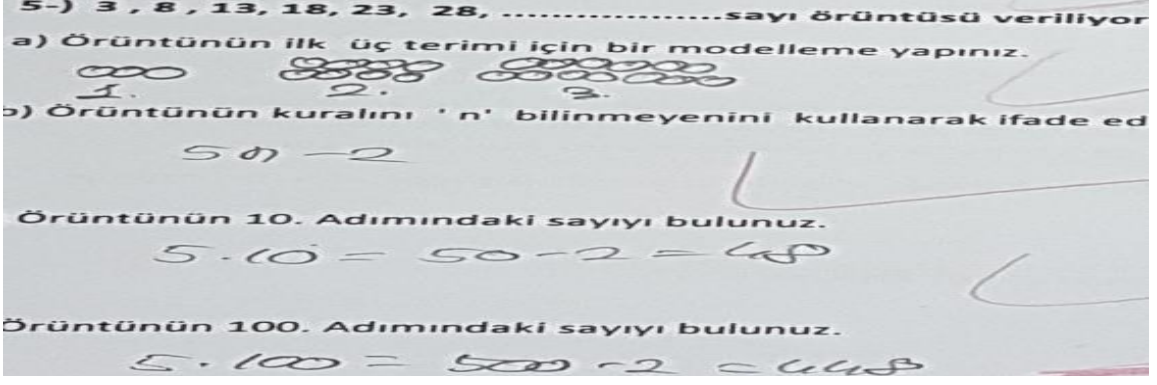 5-) 3 , 8 , 13, 18, 23, 28, ....................sayı örüntüsü veriliyor
a) Örüntünün ilk üç terimi için bir modelleme yapınız.
1. 2. 3.
b) Örüntünün kuralını 'n' bilinmeyenini kullanarak ifade ed
5n-2
Örüntünün 10. Adımındaki sayıyı bulunuz.
5.10 = 50-2 = 48
Örüntünün 100. Adımındaki sayıyı bulunuz.
5.100 = 500-2 = 448